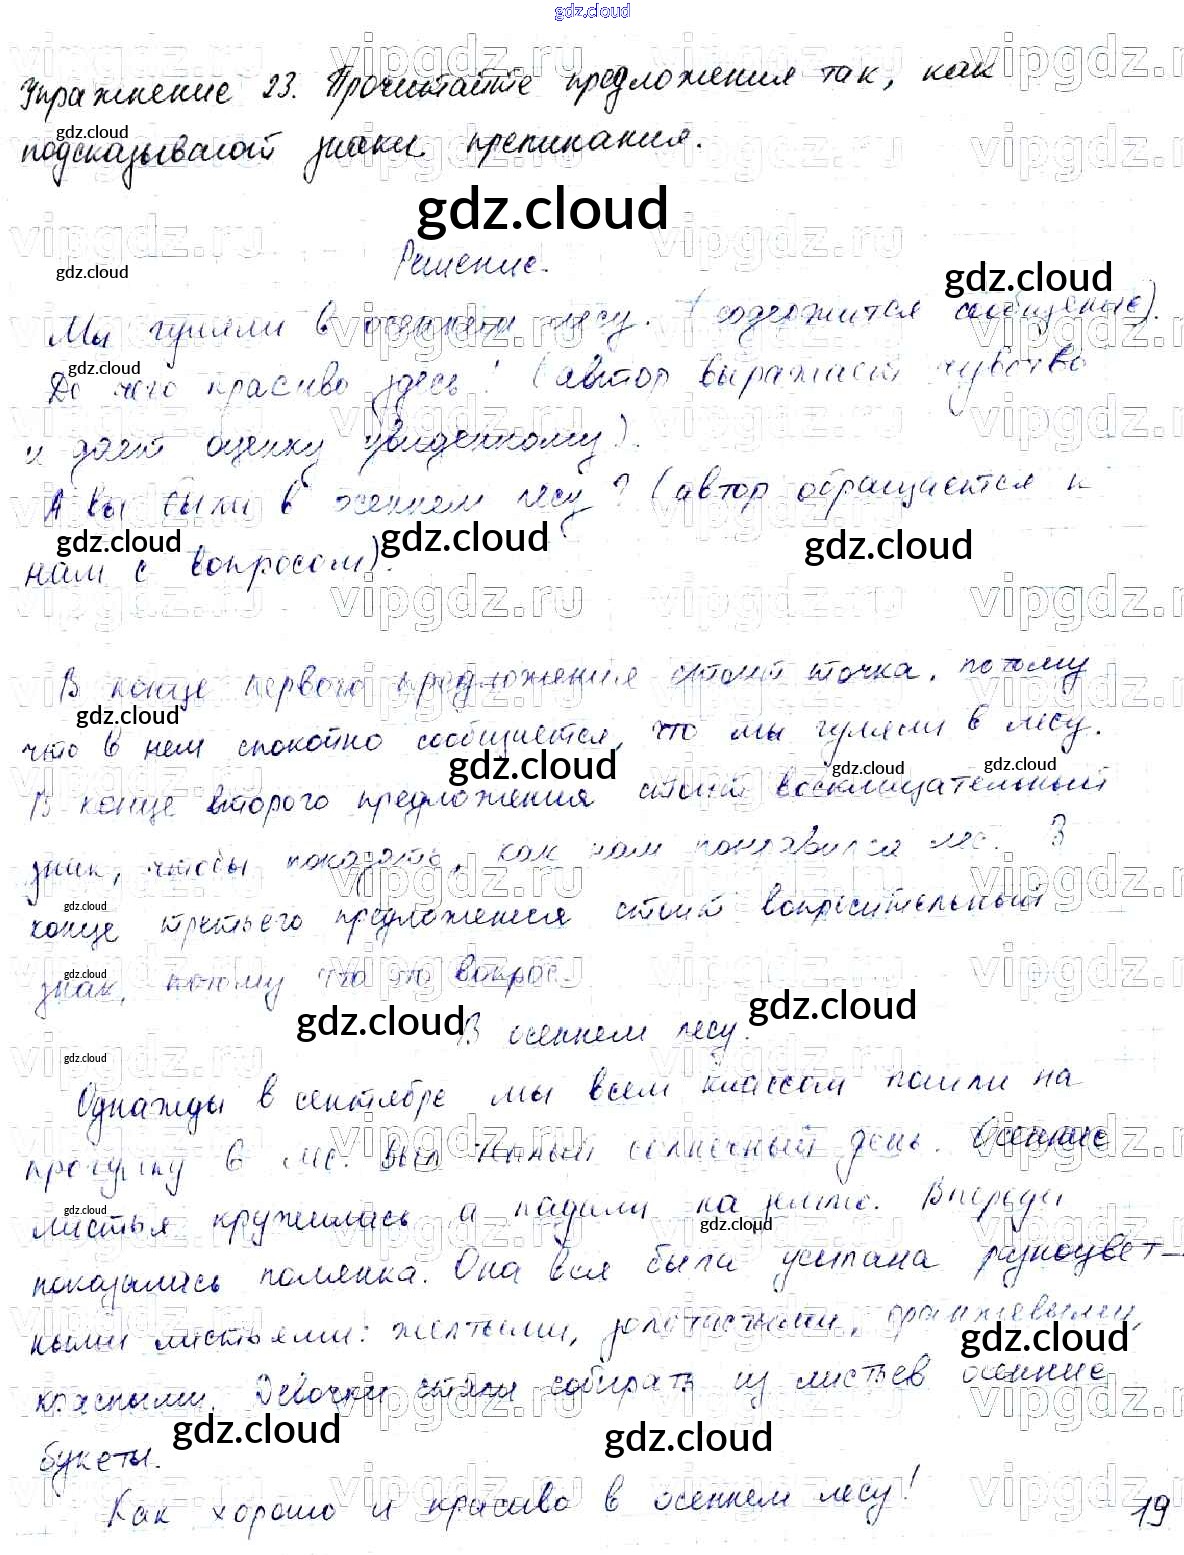 gdz.cloud
Упражнение 23. Прочитайте предложения так, как
подсказывают знаки препинания.
Решение.
Мы гуляли в осеннем лесу. (содержится сообщение).
До чего красиво здесь! (автор выражает чувство
и даёт оценку увиденному).
А вы были в осеннем лесу? (автор обращается к
нам с вопросом).
В конце первого предложения стоит точка, потому
что в нем спокойно сообщается, что мы гуляли в лесу.
В конце второго предложения стоит восклицательный
знак, чтобы показать, как нам понравился лес. В
конце третьего предложения стоит вопросительный
знак, потому что это вопрос.
В осеннем лесу.
Однажды в сентябре мы всем классом пошли на
прогулку в лес. Был тёплый солнечный день. Осенние
листья кружились и падали на землю. Впереди
показалась полянка. Она вся была усыпана разноцвет-
ными листьями: желтыми, золотистыми, оранжевыми,
красными. Девочки стали собирать из листьев осенние
букеты.
Как хорошо и красиво в осеннем лесу!
19